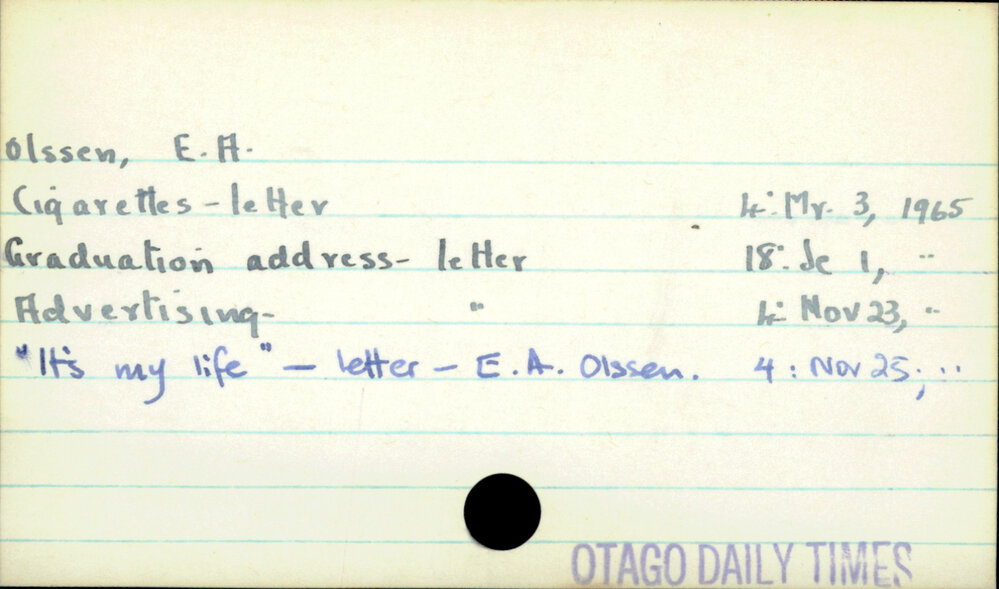 Olssen, E. A.
Cigarettes - letter 4: Mr. 3, 1965
Graduation address - letter 18: Je 1, "
Advertising - " 4: Nov 23, "
"It's my life" — letter — E. A. Olssen. 4: Nov 25, "
OTAGO DAILY TIMES